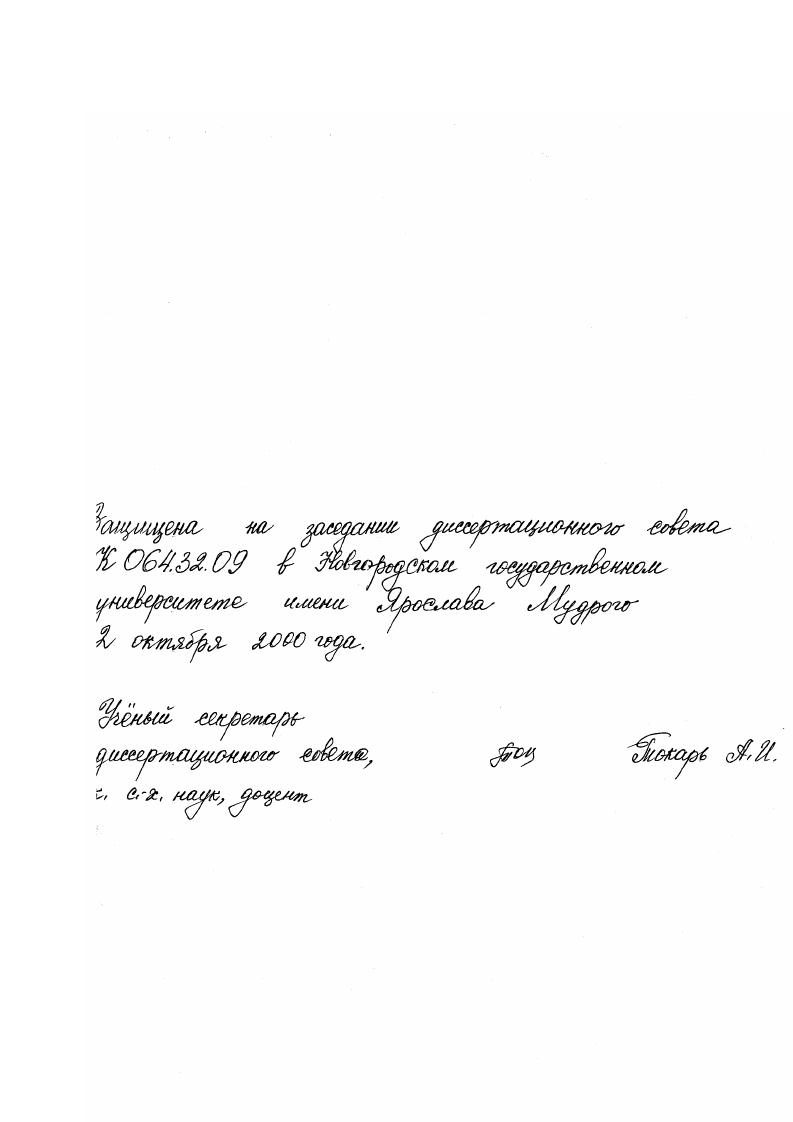 Защищена на заседании диссертационного совета
К 064.32.09 в Новгородском государственном
университете имени Ярослава Мудрого
2 октября 2000 года.
Учёный секретарь
диссертационного совета, Токарь А.И.
к. с.-х. наук, доцент